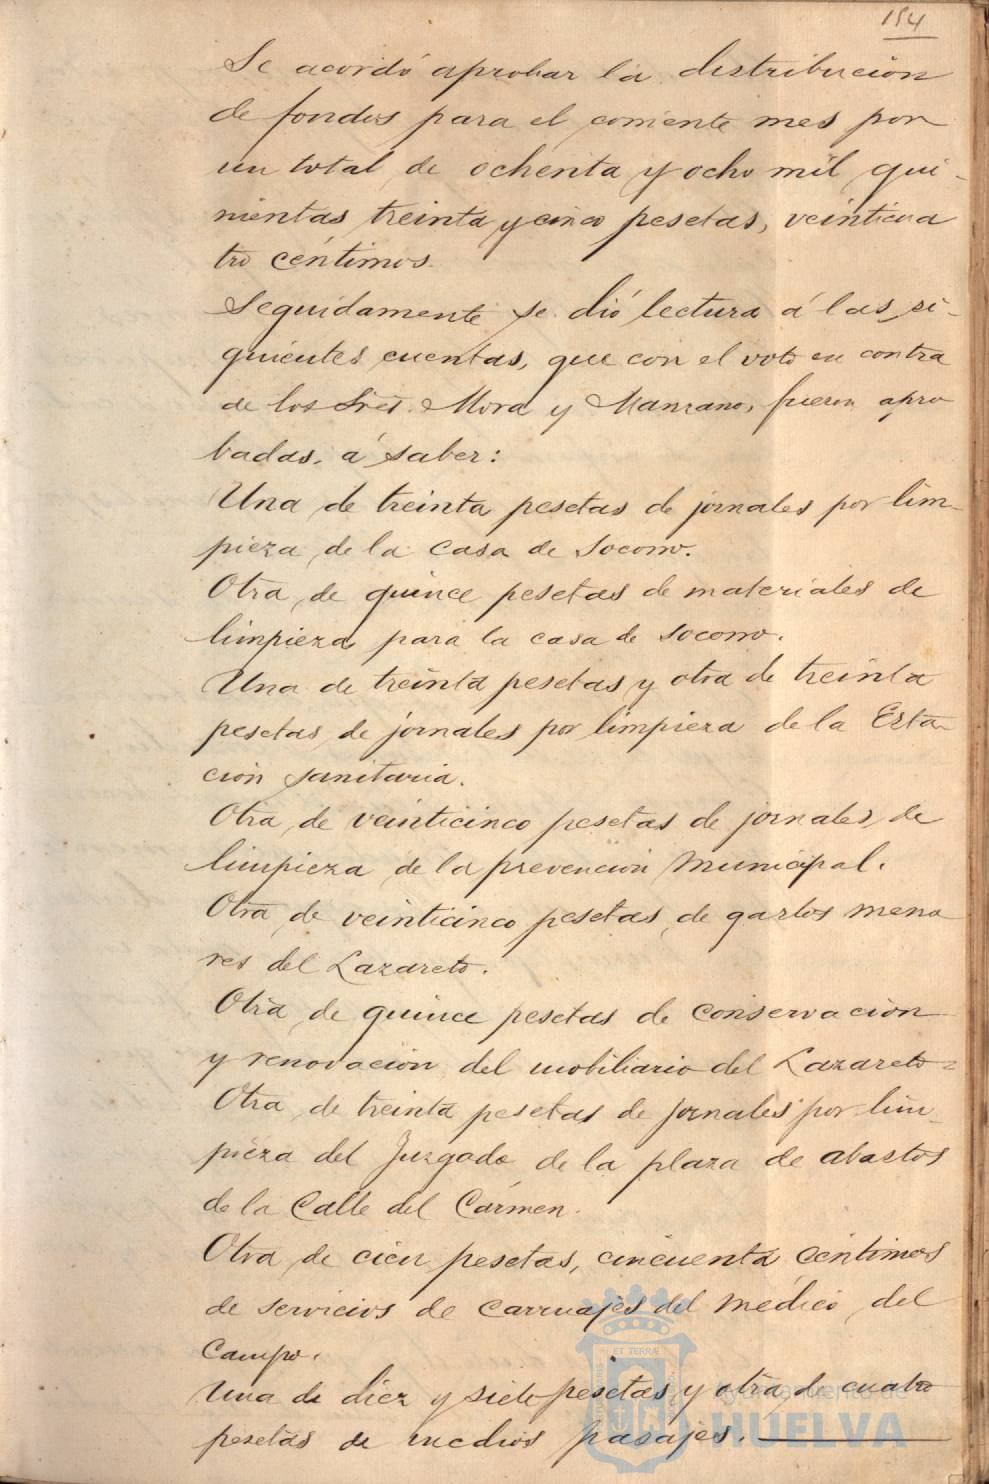 154
Se acordó aprobar la distribución
de fondos para el corriente mes por
un total de ochenta y ocho mil qui-
nientas treinta y cinco pesetas, veinticua
tro céntimos.
Seguidamente se dió lectura á las si-
guientes cuentas, que con el voto en contra
de los Sres. Mora y Manzano, fueron apro
badas, á saber:
Una de treinta pesetas de jornales por lim-
pieza de la casa de Socorro.
Otra de quince pesetas de materiales de
limpieza para la casa de socorro.
Una de treinta pesetas y otra de treinta
pesetas de jornales por limpieza de la Esta-
ción sanitaria.
Otra de veinticinco pesetas de jornales de
limpieza de la prevención Municipal.
Otra de veinticinco pesetas de gastos meno
res del Lazareto.
Otra de quince pesetas de conservación
y renovación del mobiliario del Lazareto=
Otra de treinta pesetas de jornales por lim-
pieza del Juzgado de la plaza de abastos
de la Calle del Cármen.
Otra de cien pesetas, cincuenta céntimos
de servicios de carruajes del médico del
Campo.
Una de diez y siete pesetas y otra de cuatro
pesetas de medios pasajes.
ET TERRÆ
Ayuntamiento de
HUELVA